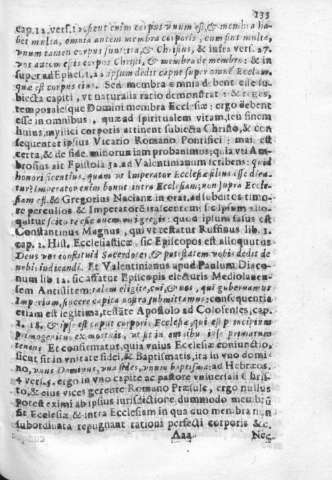 233
cap. 12. vers. 12. sicut enim corpus vnum est, & membra ha-
bet multa, omnia autem membra corporis, cum sint multa,
vnum tamen corpus sunt, ita, & Christus, & infra vers. 27.
vos autem estis corpus Christi, & membra de membro: & in
super ad Ephes. 1. 22. ipsum dedit caput super omnē Ecclesiam,
quæ est corpus eius. Sed membra omnia debent esse su-
biecta capiti, vt naturalis ratio demonstrat: & Reges,
temporales que Domini membra Ecclesiæ: ergo debent
esse in omnibus, quæ ad spiritualem vitam, seu finem
huius, mystici corporis attinent subiecta Christo, & con
sequenter ipsius Vicario Romano Pontifici: maior est
certa, & de fide, minor etiam probanimus; quia vt Am-
brosius ait Epistola 32. ad Valentinianum scribens: quod
honorificentius, quam vt Imperator Ecclesiæ filius esse dica-
tur? imperator enim bonus intra Ecclesiam, non supra Eccle-
siam est, & Gregorius Nacianz. in orat. ad subditos timo-
re perculios & Imperatorē irascentem: scipsum allo-
quitur scito te esse ouem mei gregis: quod ipsum falus est
Constantinus Magnus, qui vt testatur Ruffinus lib. 1.
cap. 2. Hist. Ecclesiasticæ, sic Episcopos est alloquutus
Deus vos constituit Sacerdotes, & potestatem vobis dedit de
nobis iudicandi. Et Valentinianus apud Paulum Diaco-
num lib 12. sic affatur Episcopis electuris Mediolanen-
sem Antistitem: talem eligite, cui & nos, qui gubernamus
Imperium, sincere capita nostra submittamus: consequentia
etiam est legitima, testāte Apostolo ad Colosenses, cap.
1. 18. & ipse est caput corporis Ecclesiæ, qui est principium
primogenitus ex mortuis, vt sit in omnibus ipse primatum
tenens Et confirmatur, quia vnius Ecclesiæ coniunctio,
sicut sit in vnitate fidei, & Baptismatis, ita in vno domi-
no, vnus Dominus, vna fides, vnum baptisma: ad Hebræos.
4 vers. 5. ergo in vno capite ac pastore vniuersali Chris-
to, & eius vices gerente Romano Præsule, ergo nullus
potest eximi ab ipsius iurisdictione, dummodo membrū
sit Ecclesiæ & intra Ecclesiam in qua quo membra non
subordinata repugnant rationi perfecti corporis &c.
Aaa Nec